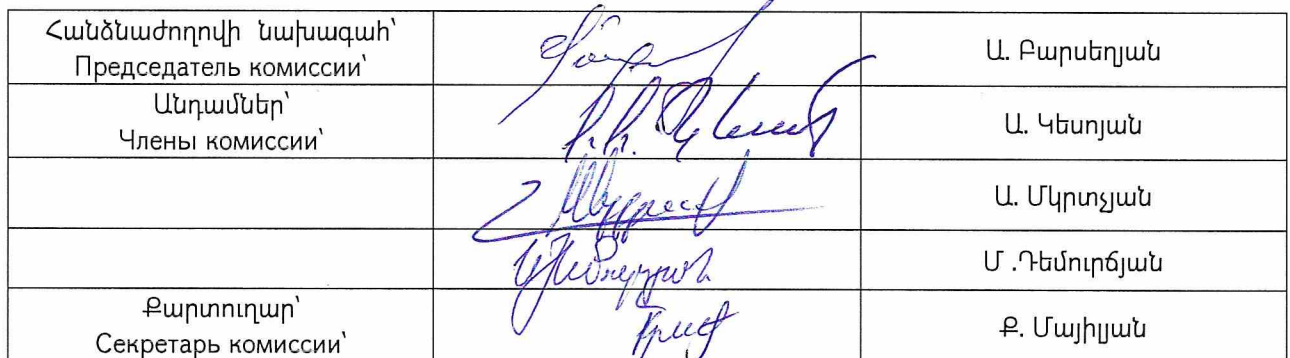 Հանձնաժողովի նախագահ՝
Председатель комиссии՝
Ա. Բարսեղյան
Անդամներ՝
Члены комиссии՝
Ա. Կեսոյան
Ա. Մկրտչյան
Մ .Դեմուրճյան
Քարտուղար՝
Секретарь комиссии՝
Ք. Մայիլյան